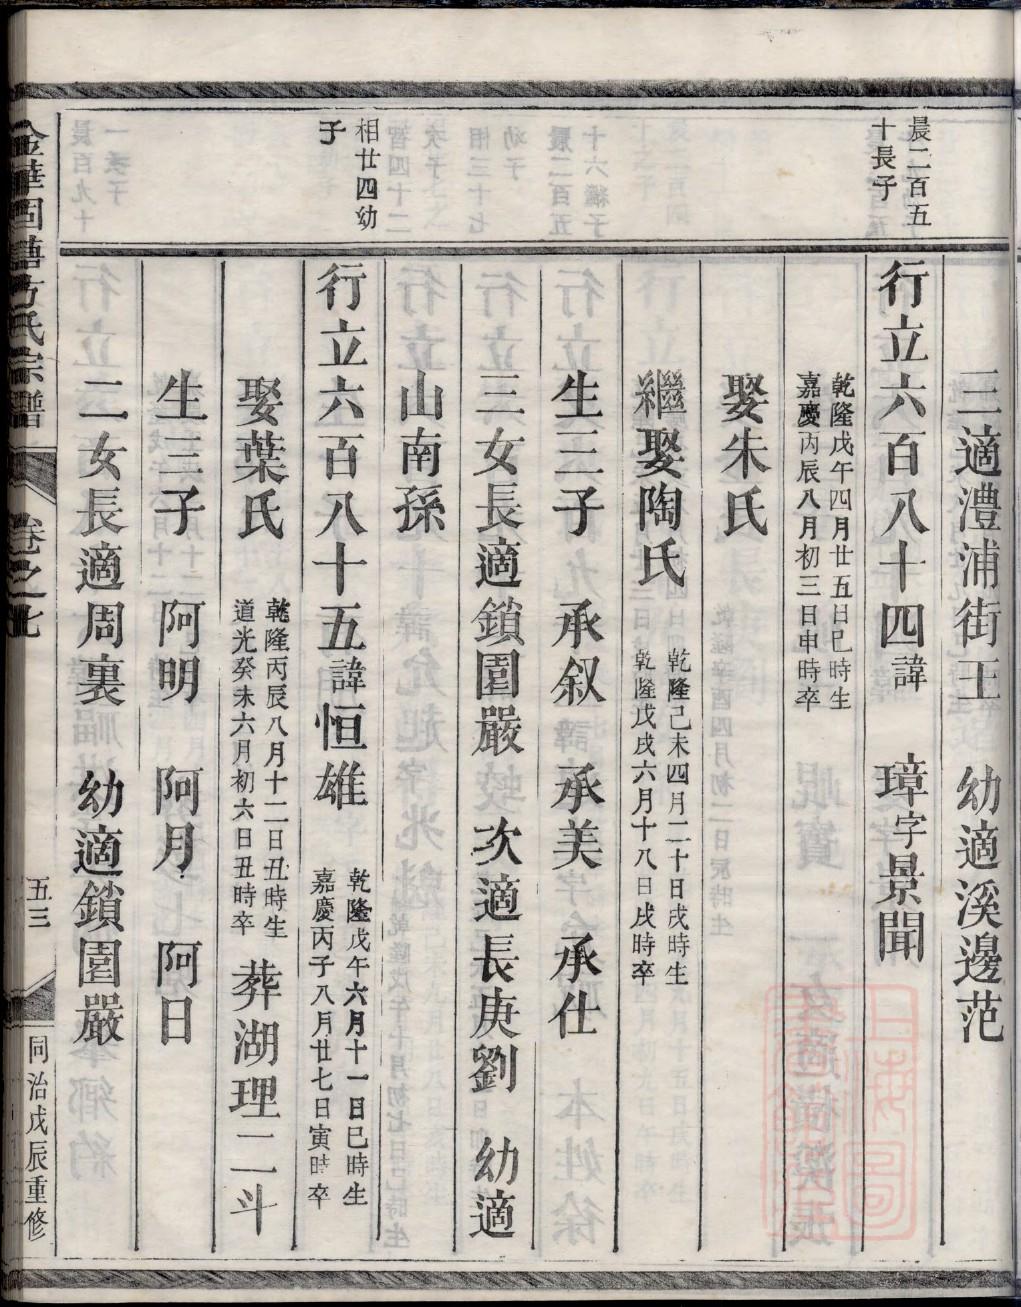 三適澧浦街王　幼適溪邊范
晨二百五
十長子
行立六百八十四諱　璋字景聞
乾隆戊午四月廿五日巳時生
嘉慶丙辰八月初三日申時卒
娶朱氏
繼娶陶氏
乾隆己未四月二十日戌時生
乾隆戊戌六月十八日戌時卒
生三子　承叙　承美　承仕
三女長適鎖園嚴　次適長庚劉　幼適
山南孫
相廿四幼
子
行立六百八十五諱恒雄
乾隆戊午六月十一日巳時生
嘉慶丙子八月廿七日寅時卒
娶葉氏
乾隆丙辰八月十二日丑時生
道光癸未六月初六日丑時卒
葬湖理二斗
生三子　阿明　阿月　阿日
二女長適周裏　幼適鎖園嚴
金華固塘方氏宗譜
卷之七
五三
同治戊辰重修